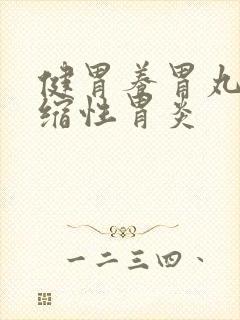 健胃养胃丸
缩性胃炎
一二三四、